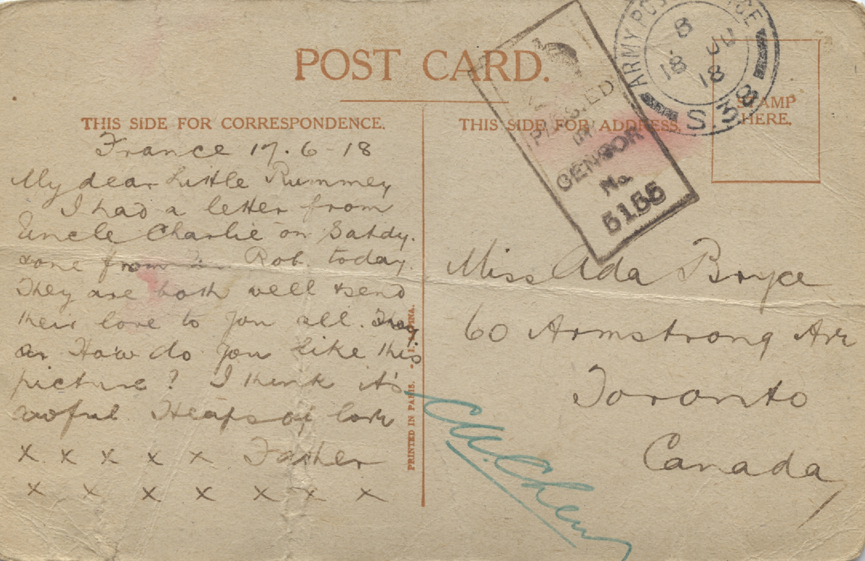 POST CARD.
THIS SIDE FOR CORRESPONDENCE.
France 17.6-18
My dear Little Rummey
I had a letter from
Uncle Charlie on Satdy.
& one from Rob. today.
They are both well & send
their love to you all.
How do you like this
picture? I think it's
awful Heaps of love
x x x x x Father
x x x x x x x
PRINTED IN PARIS.
THIS SIDE FOR ADDRESS.
PASSED
BY
CENSOR
No.
5155
ARMY POST OFFICE
8 JU
18 18
S.38
STAMP
HERE.
Miss Ada Bryce
60 Armstrong Ave
Toronto
Canada